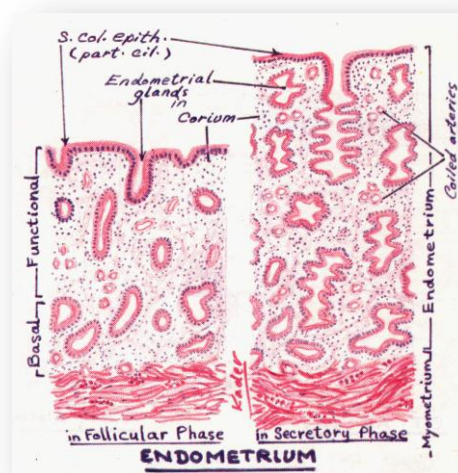 S. col. epith.
(part. cil.)
Endometrial
glands
in
Corium
Coiled arteries
Functional
Basal
Endometrium
Myometrium
Kader
in Follicular Phase
in Secretory Phase
ENDOMETRIUM